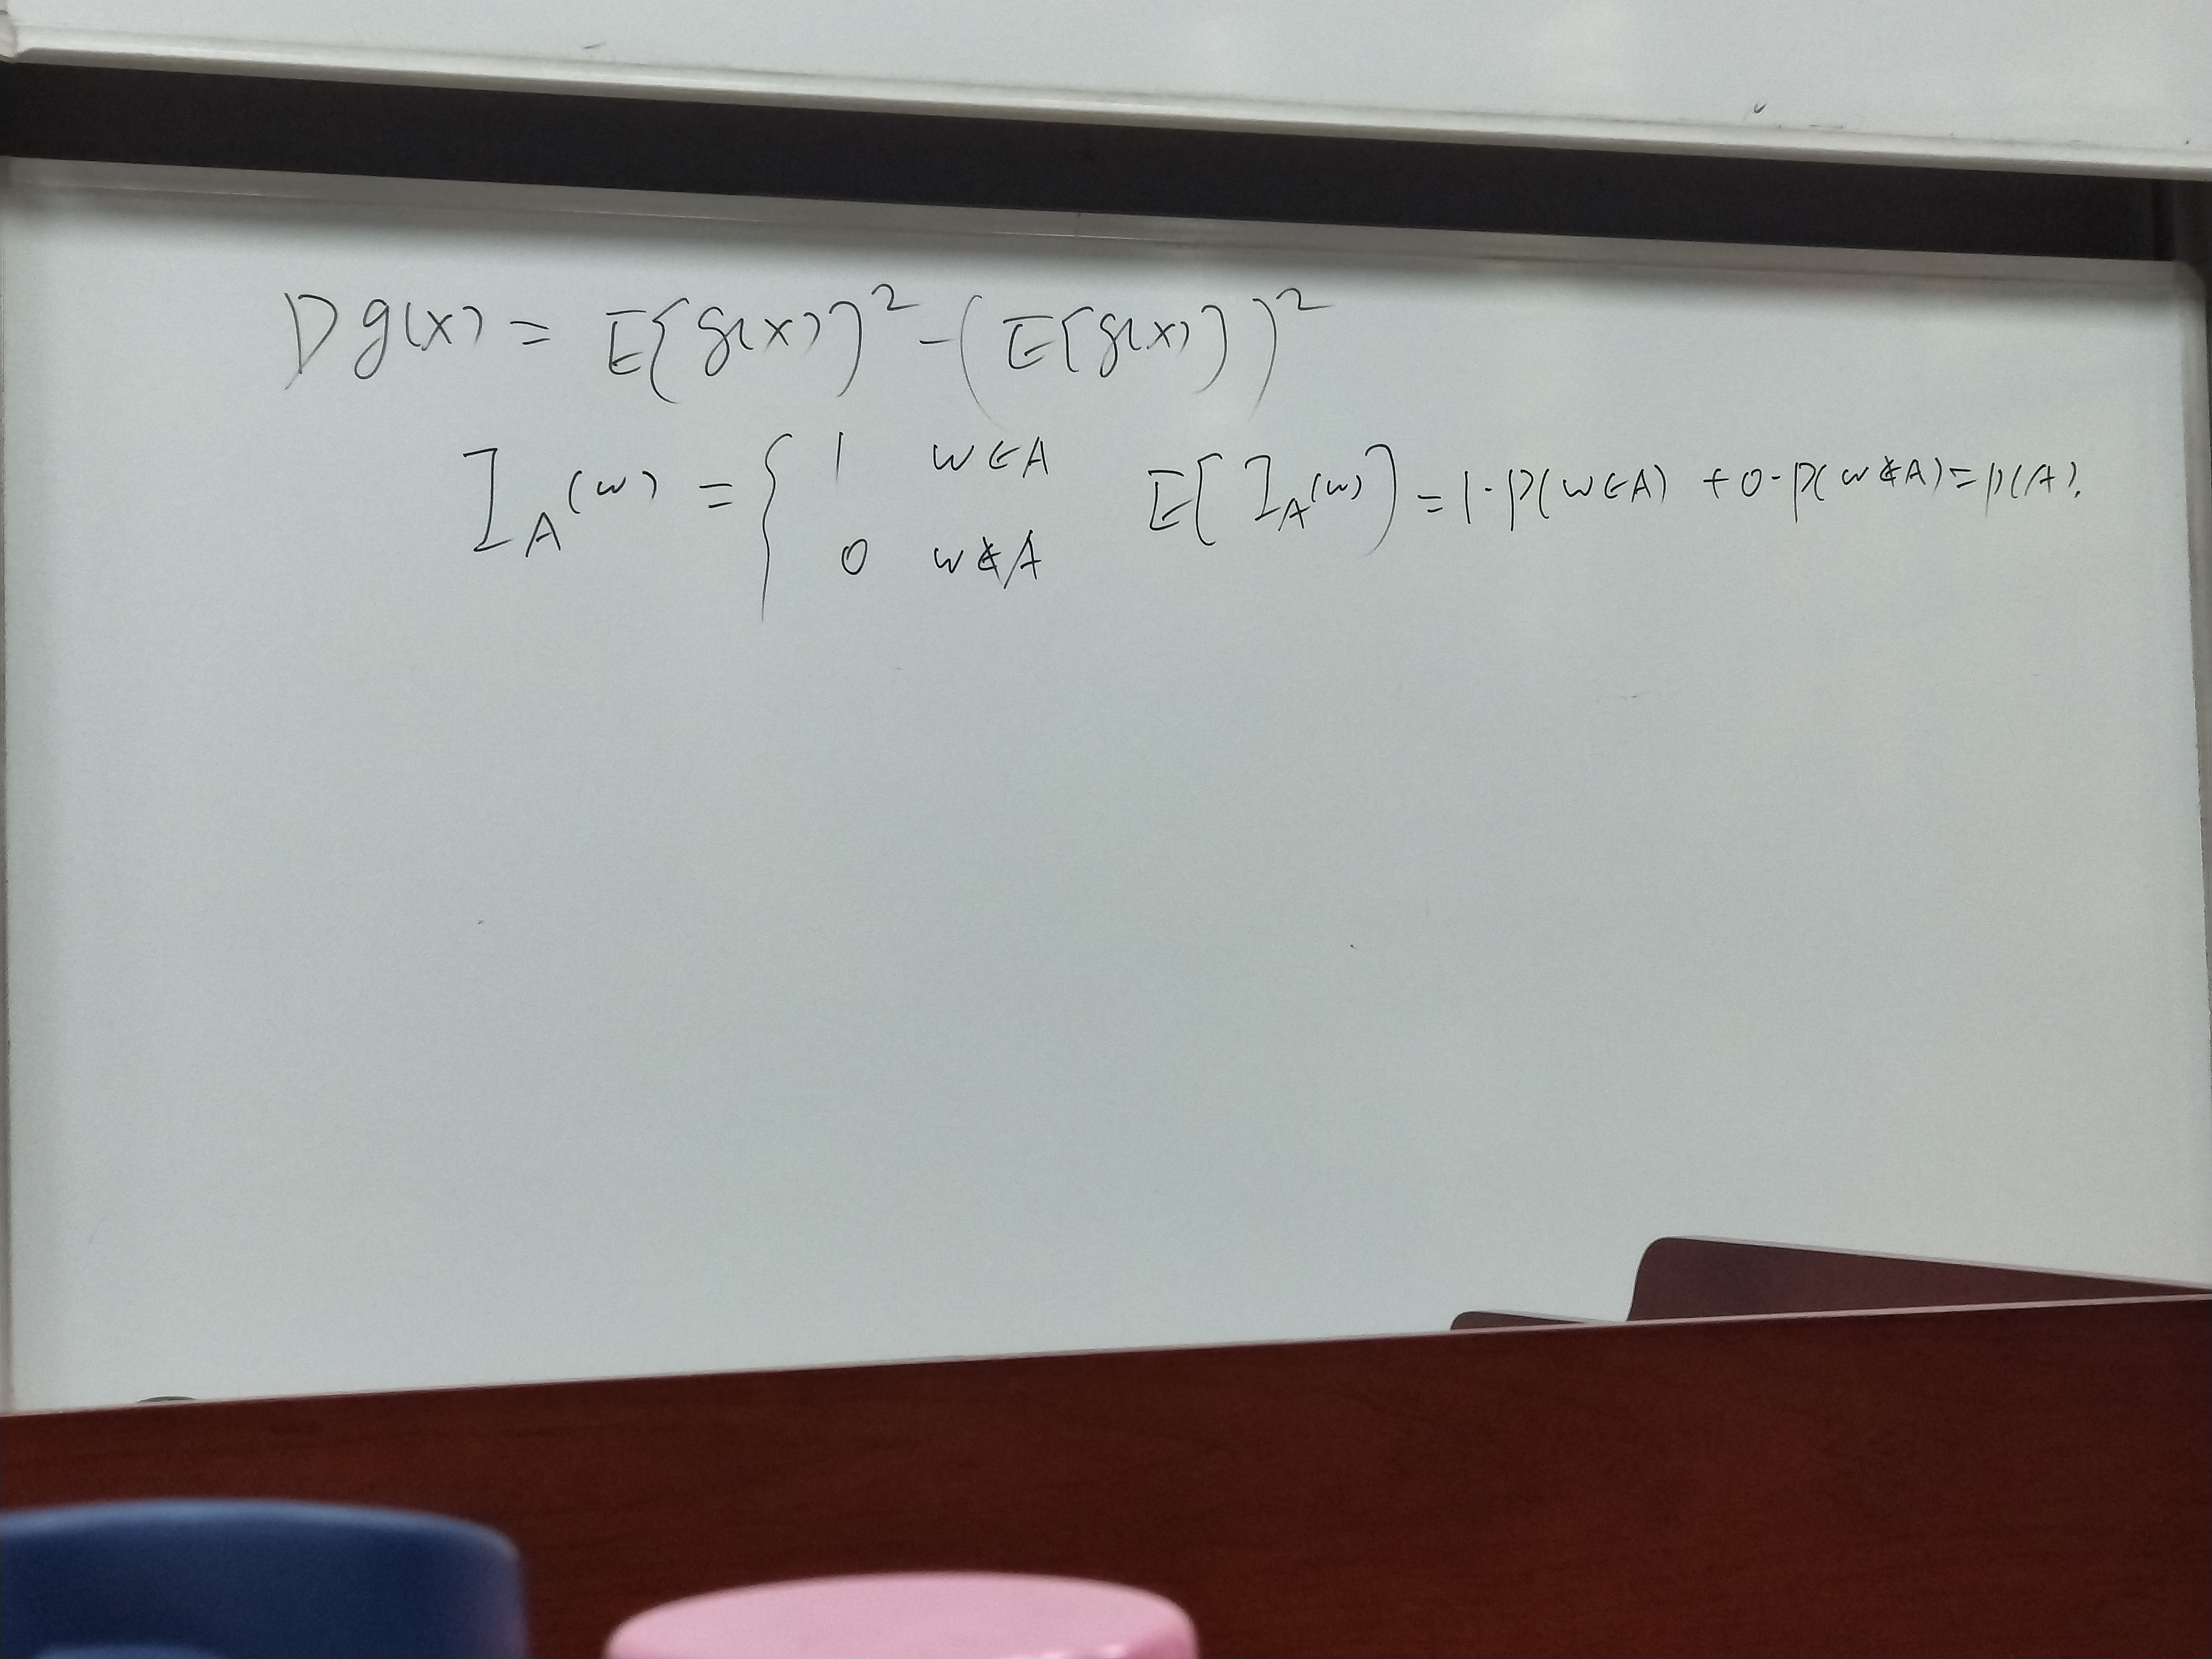 Dg(x) = E[g(x)]² - (E[g(x)])²
I_A(w) = { 1 w∈A E[I_A(w)] = 1·P(w∈A) + 0·P(w∉A) = P(A).
0 w∉A